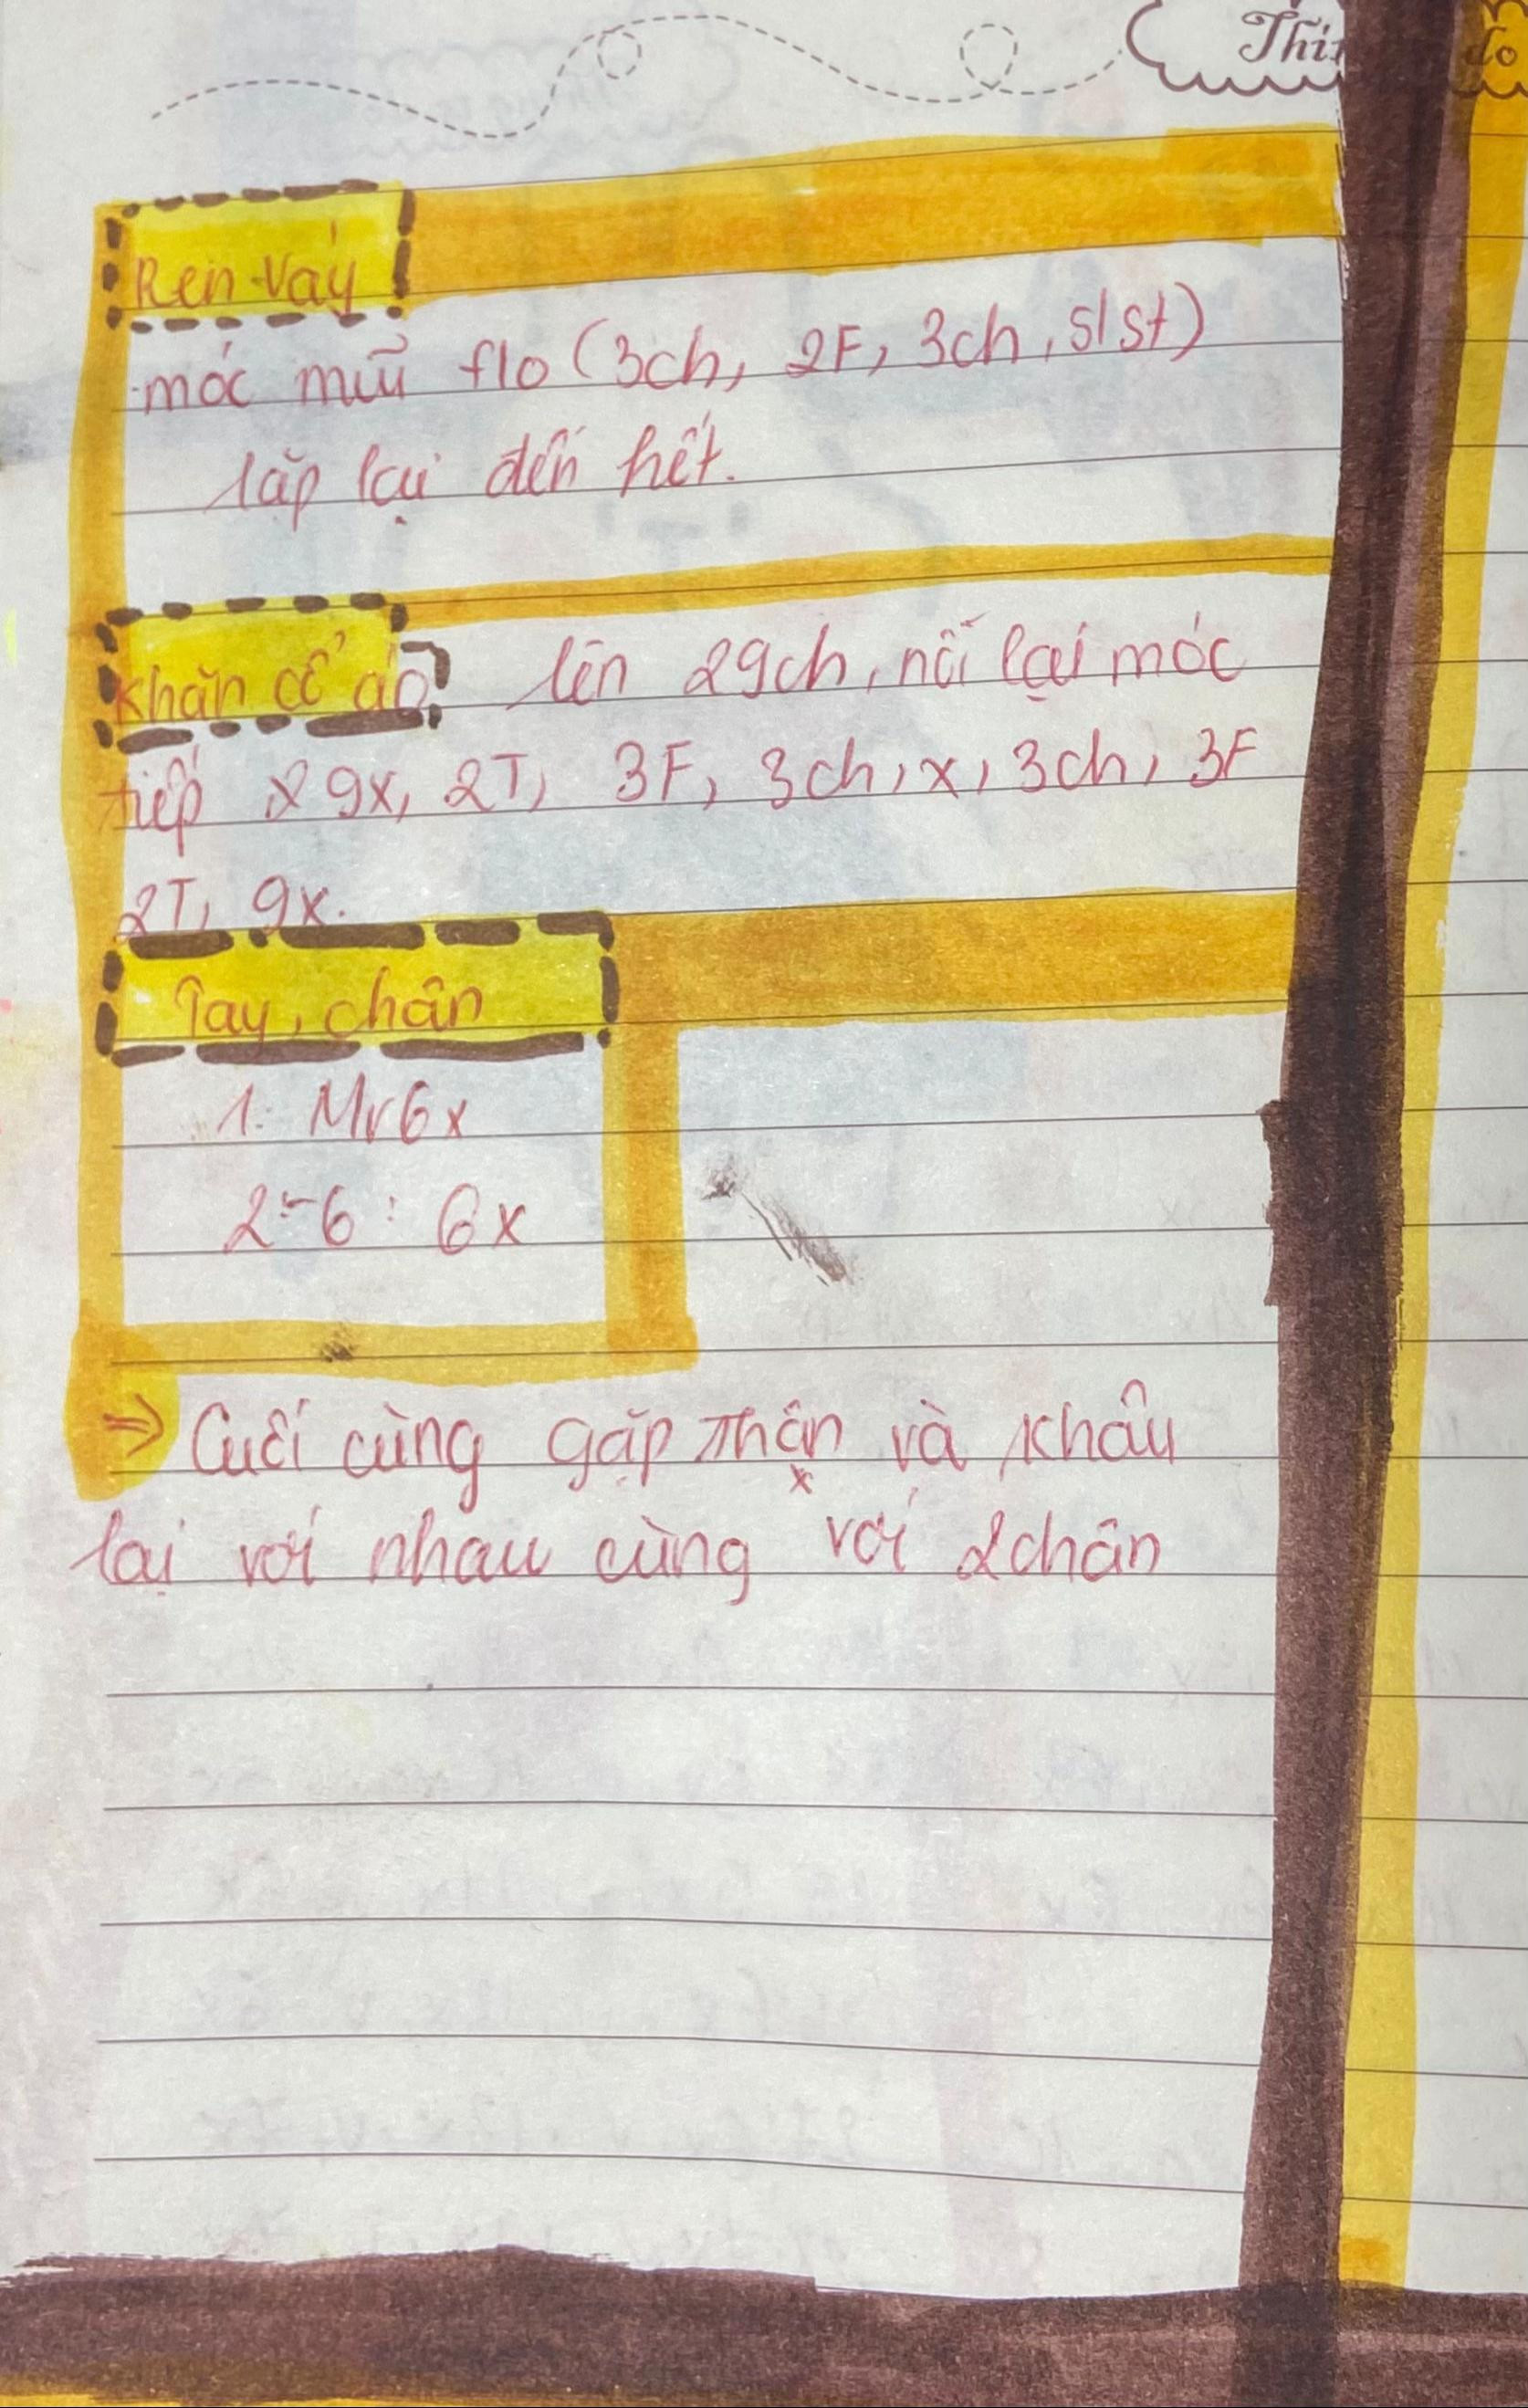 Ren váy
móc mũi flo (3ch, 2F, 3ch, slst)
lặp lại đến hết.
Khăn cổ áo lên 29ch, nối lại móc
tiếp 9x, 2T, 3F, 3ch, x, 3ch, 3F
2T, 9x.
Tay, chân
1. Mr6x
2-6: 6x
⇒ Cuối cùng gặp thân và khâu
lại với nhau cùng với 2chân